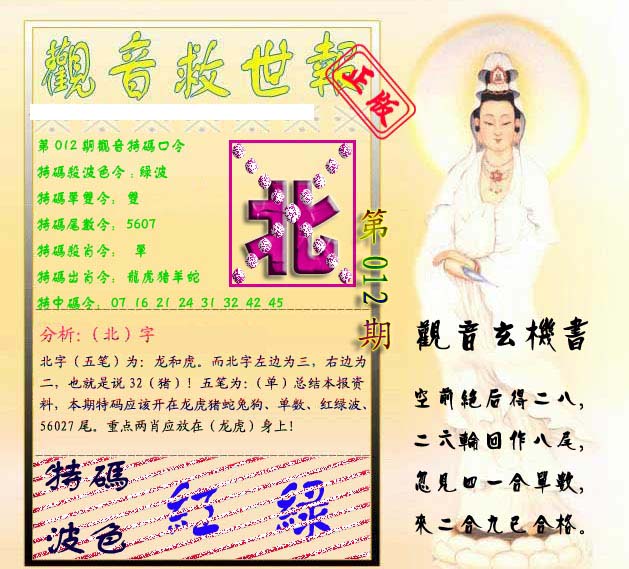 觀音救世報
正版
第012期觀音特碼口令
特碼殺波色令:綠波
特碼單雙令: 雙
特碼尾數令: 5607
特碼殺肖令: 單
特碼出肖令: 龍虎猪羊蛇
特中碼令: 07 16 21 24 31 32 42 45
北
第012期
分析:（北）字
北字（五笔）为：龙和虎。而北字左边为三，右边为
二，也就是说32（猪）！五笔为：（单）总结本报资
料，本期特码应该开在龙虎猪蛇兔狗、单数、红绿波、
56027尾。重点两肖应放在（龙虎）身上！
特碼
波色
紅 綠
觀音玄機書
空前絕后得二八，
二六輪回作八尾，
忽見四一合單數，
來二合九已合格。